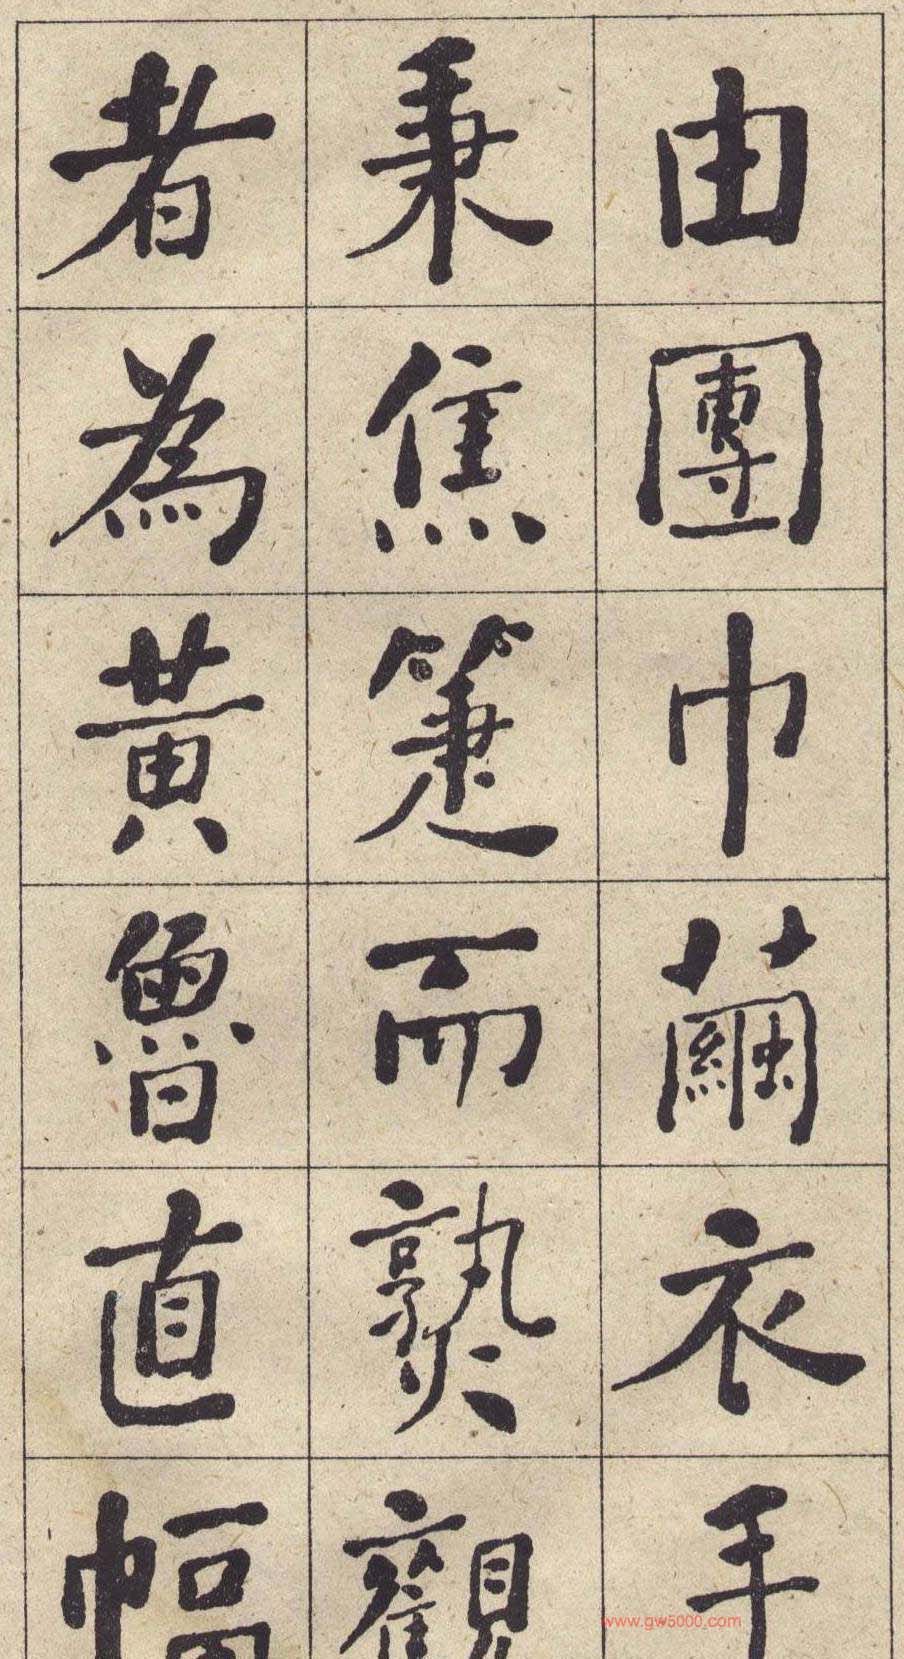 由團巾繭衣手
秉焦箑而熟觀
者為黃魯直幅
www.gw5000.com